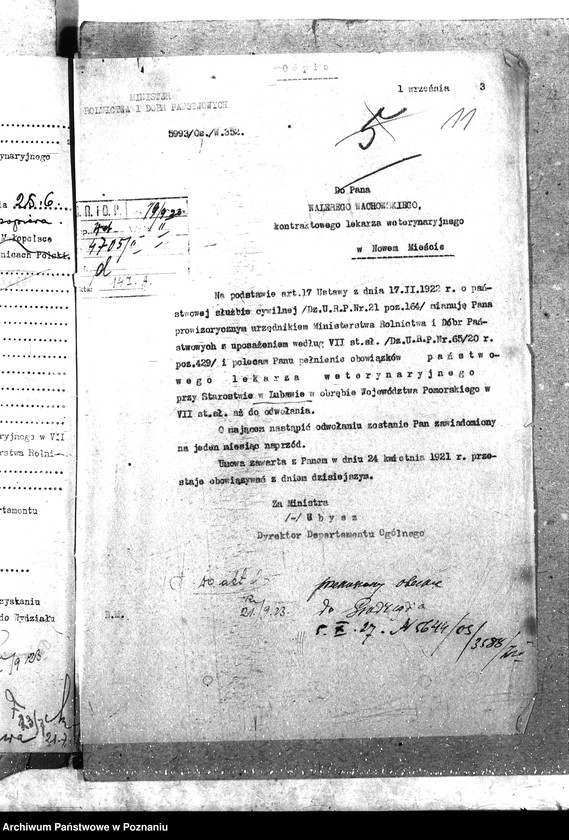 O d p i s
MINISTER
ROLNICTWA I DÓBR PAŃSTWOWYCH
1 września 3
5993/Os./W.352.
5
11
Do Pana
WALEREGO WACHOWSKIEGO,
kontraktowego lekarza weterynaryjnego
w Nowem Mieście
19/9 23
4705/
d
147. A.
Na podstawie art.17 Ustawy z dnia 17.II.1922 r. o pań-
stwowej służbie cywilnej /Dz.U.R.P.Nr.21 poz.164/ mianuję Pana
prowizorycznym urzędnikiem Ministerstwa Rolnictwa i Dóbr Pań-
stwowych z uposażeniem według VII st.sł. /Dz.U.R.P.Nr.65/20 r.
poz.429/ i polecam Panu pełnienie obowiązków p a ń s t w o-
w e g o l e k a r z a w e t e r y n a r y j n e g o
przy Starostwie w Lubawie w obrębie Województwa Pomorskiego w
VII st.sł. aż do odwołania.
O mającem nastąpić odwołaniu zostanie Pan zawiadomiony
na jeden miesiąc naprzód.
Umowa zawarta z Panem w dniu 24 kwietnia 1921 r. prze-
staje obowiązywać z dniem dzisiejszym.
Za Ministra
/-/ U b y s z
Dyrektor Departamentu Ogólnego
do akt
21/9.23.
R.M.
przekazany obecnie
do
5. X. 27. N 5644/03
/3588/
ynaryjnego
nia 25.6.
Małopolsce
nicach Polski.
ryjnego w VII
rstwa Rolni-
rtamentu
zyskaniu
do Wydziału
Archiwum Państwowe w Poznaniu